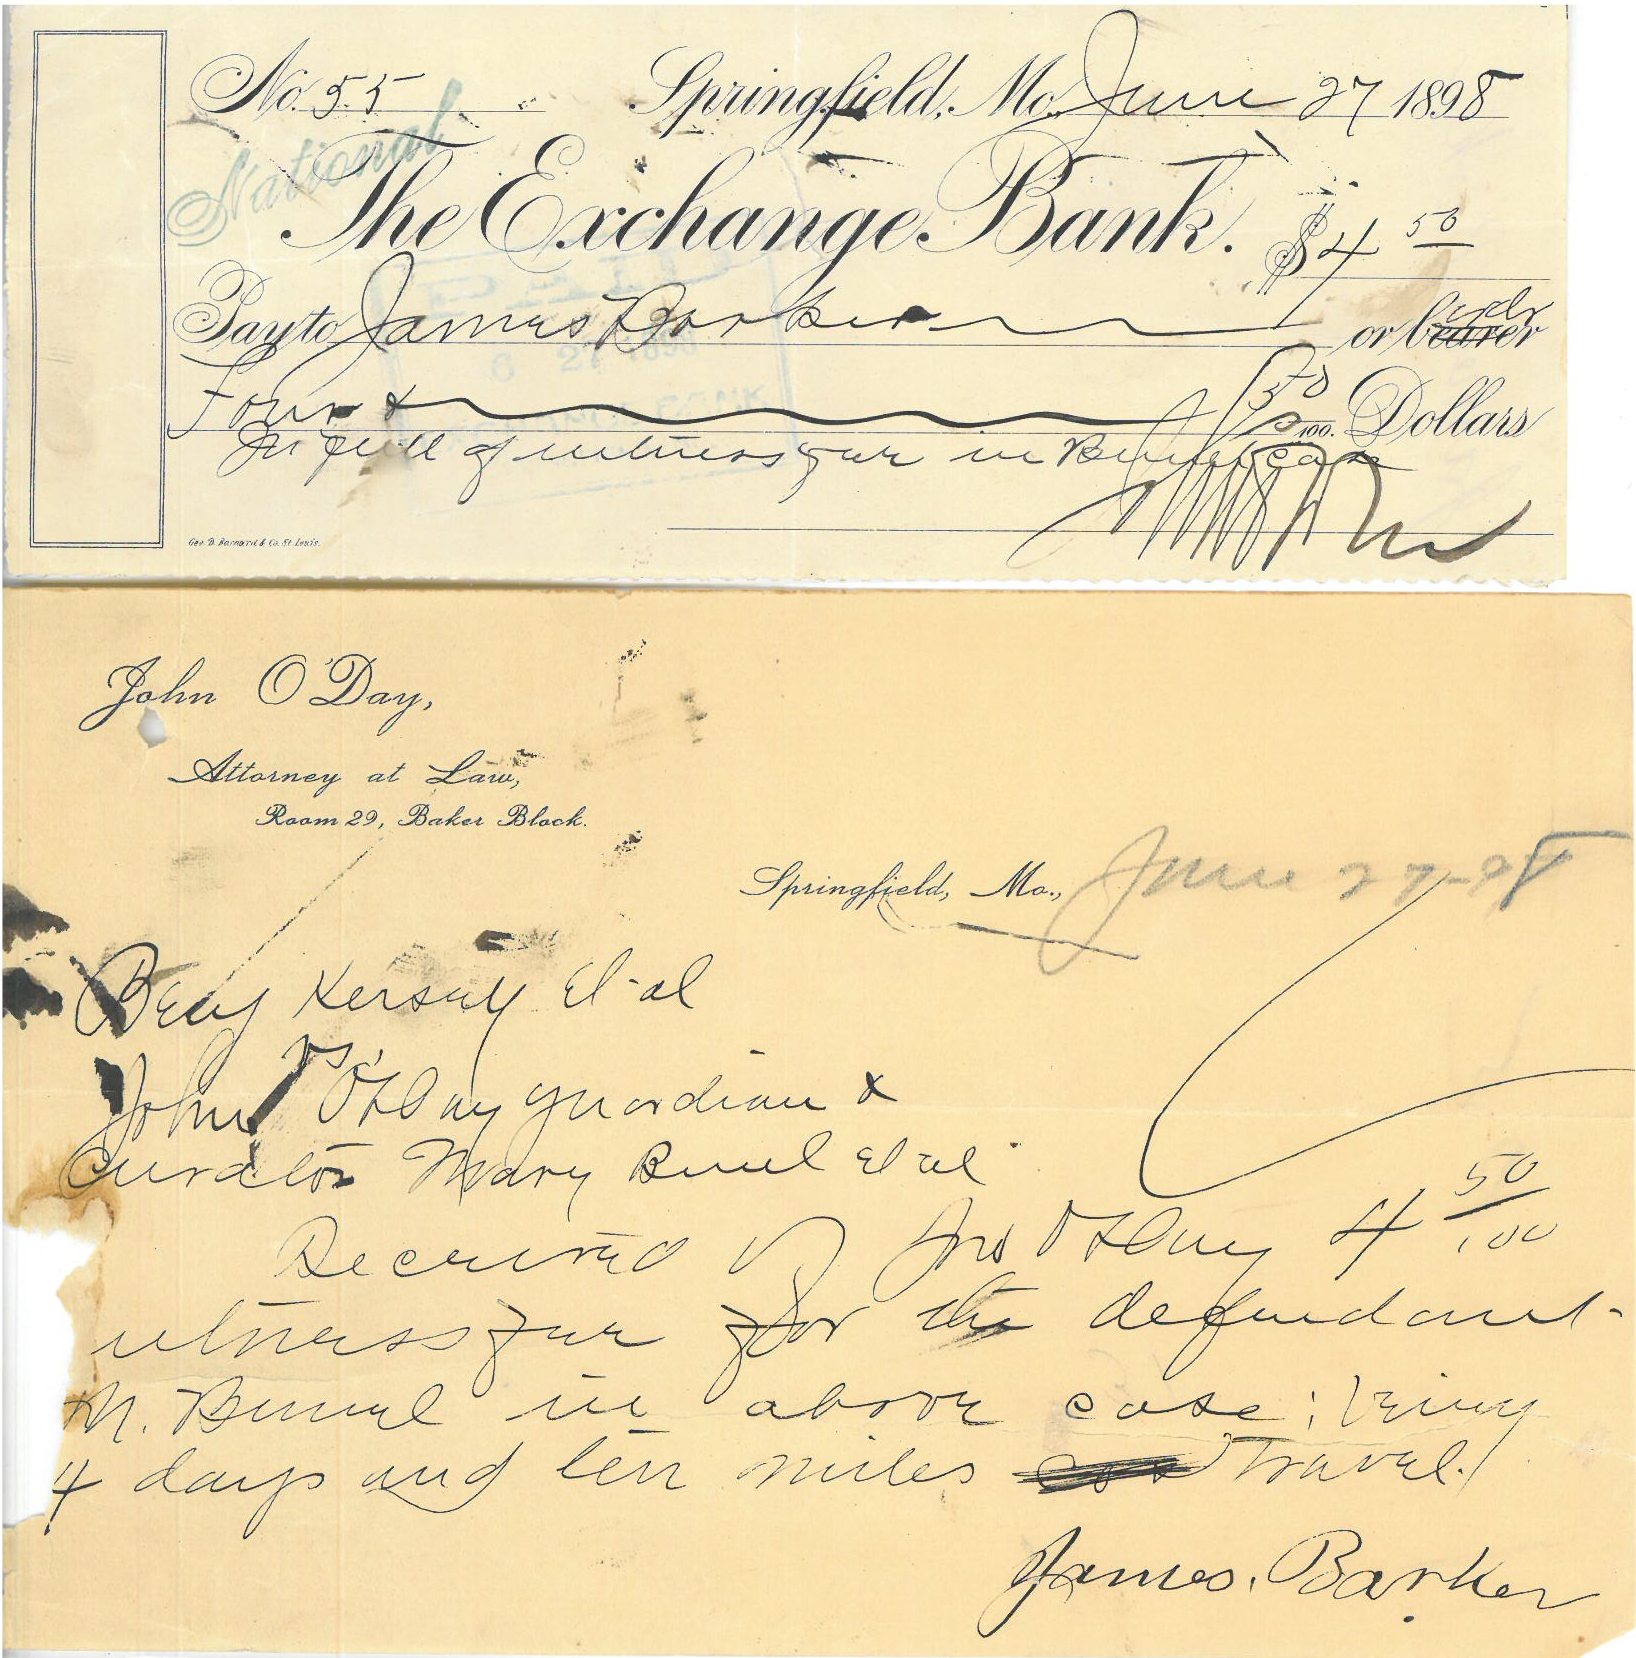 No. 55 Springfield, Mo. June 27 1898
National
The Exchange Bank. $4 50
Pay to James Barker or bearer order
6 27 1898
Four & 50/100. Dollars
In full of witness fee in case
Geo. D. Barnard & Co. St. Louis.
John O'Day,
Attorney at Law,
Room 29, Baker Block.
Springfield, Mo., June 27-98
Benj Kersey et al
vs
John O'Day guardian &
curator Mary Buel et al
Received of Jno O'Day 4 50/100
witness fee for the defendant
M. Buel in above case; being
4 days and ten miles travel.
James. Barker